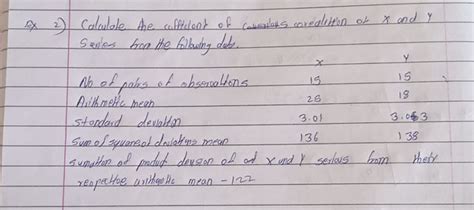 Ex 2) Calculate the cofficient of correaletion of X and Y
Series from the following data.
X Y
No of pairs of observations 15 15
Arithmetic mean 25 18
Standard deviation 3.01 3.03
Sum of squares of deviations mean 136 138
sumation of product devison of X and Y serious from their
respective arithmetic mean - 122